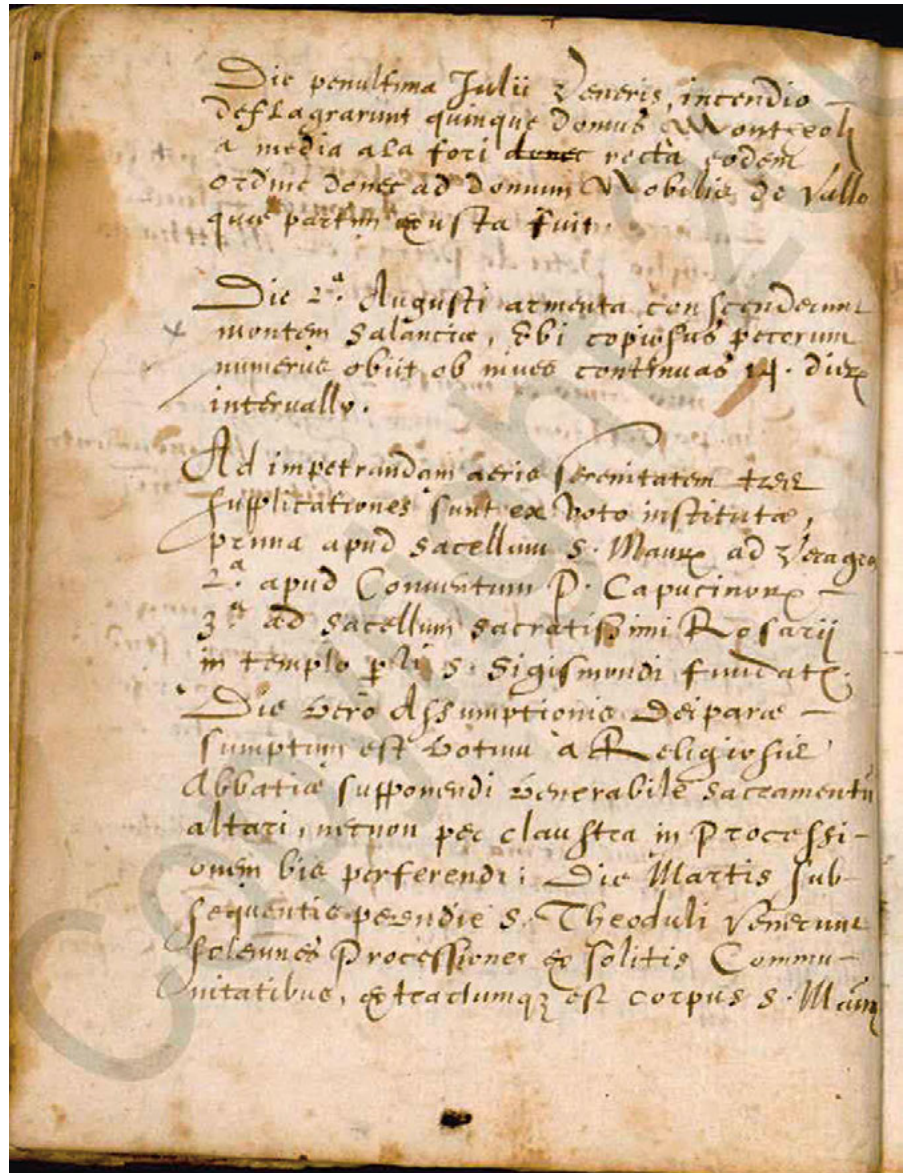 Die penultima Julii Veneris, incendio
deflagrarunt quinque domus Montheoli
a media ala fori donec recta eodem
ordine donec ad domum Nobilis de Vallo
quæ partim exusta fuit.
Die 2.ª Augusti armenta conscenderunt
montem Salanciæ, Ubi copiosus pecorum
numerus obiit ob nives continuas 14. dierum
intervallo.
Ad impetrandam aeris serenitatem tres
supplicationes sunt ex voto institutæ,
prima apud sacellum S. Maurꝝ ad Veragros
2.ª apud Conventum P. Capucinorꝝ
3.ª ad sacellum sacratissimi Rosarij
in templo S. Sigismondi fundatꝝ.
Die vero Assumptionis Deiparæ
sumptum est votum a Religiosis
Abbatiæ supponendi venerabile sacramentū
altari, necnon per claustra in Processi-
onem bis perferendi; Die Martis sub-
sequentis perendie S. Theoduli Venerunt
solemnes Processiones ex solitis Commu-
nitatibus, extractumqꝫ est corpus S. Maurꝝ
COPYRIGHT